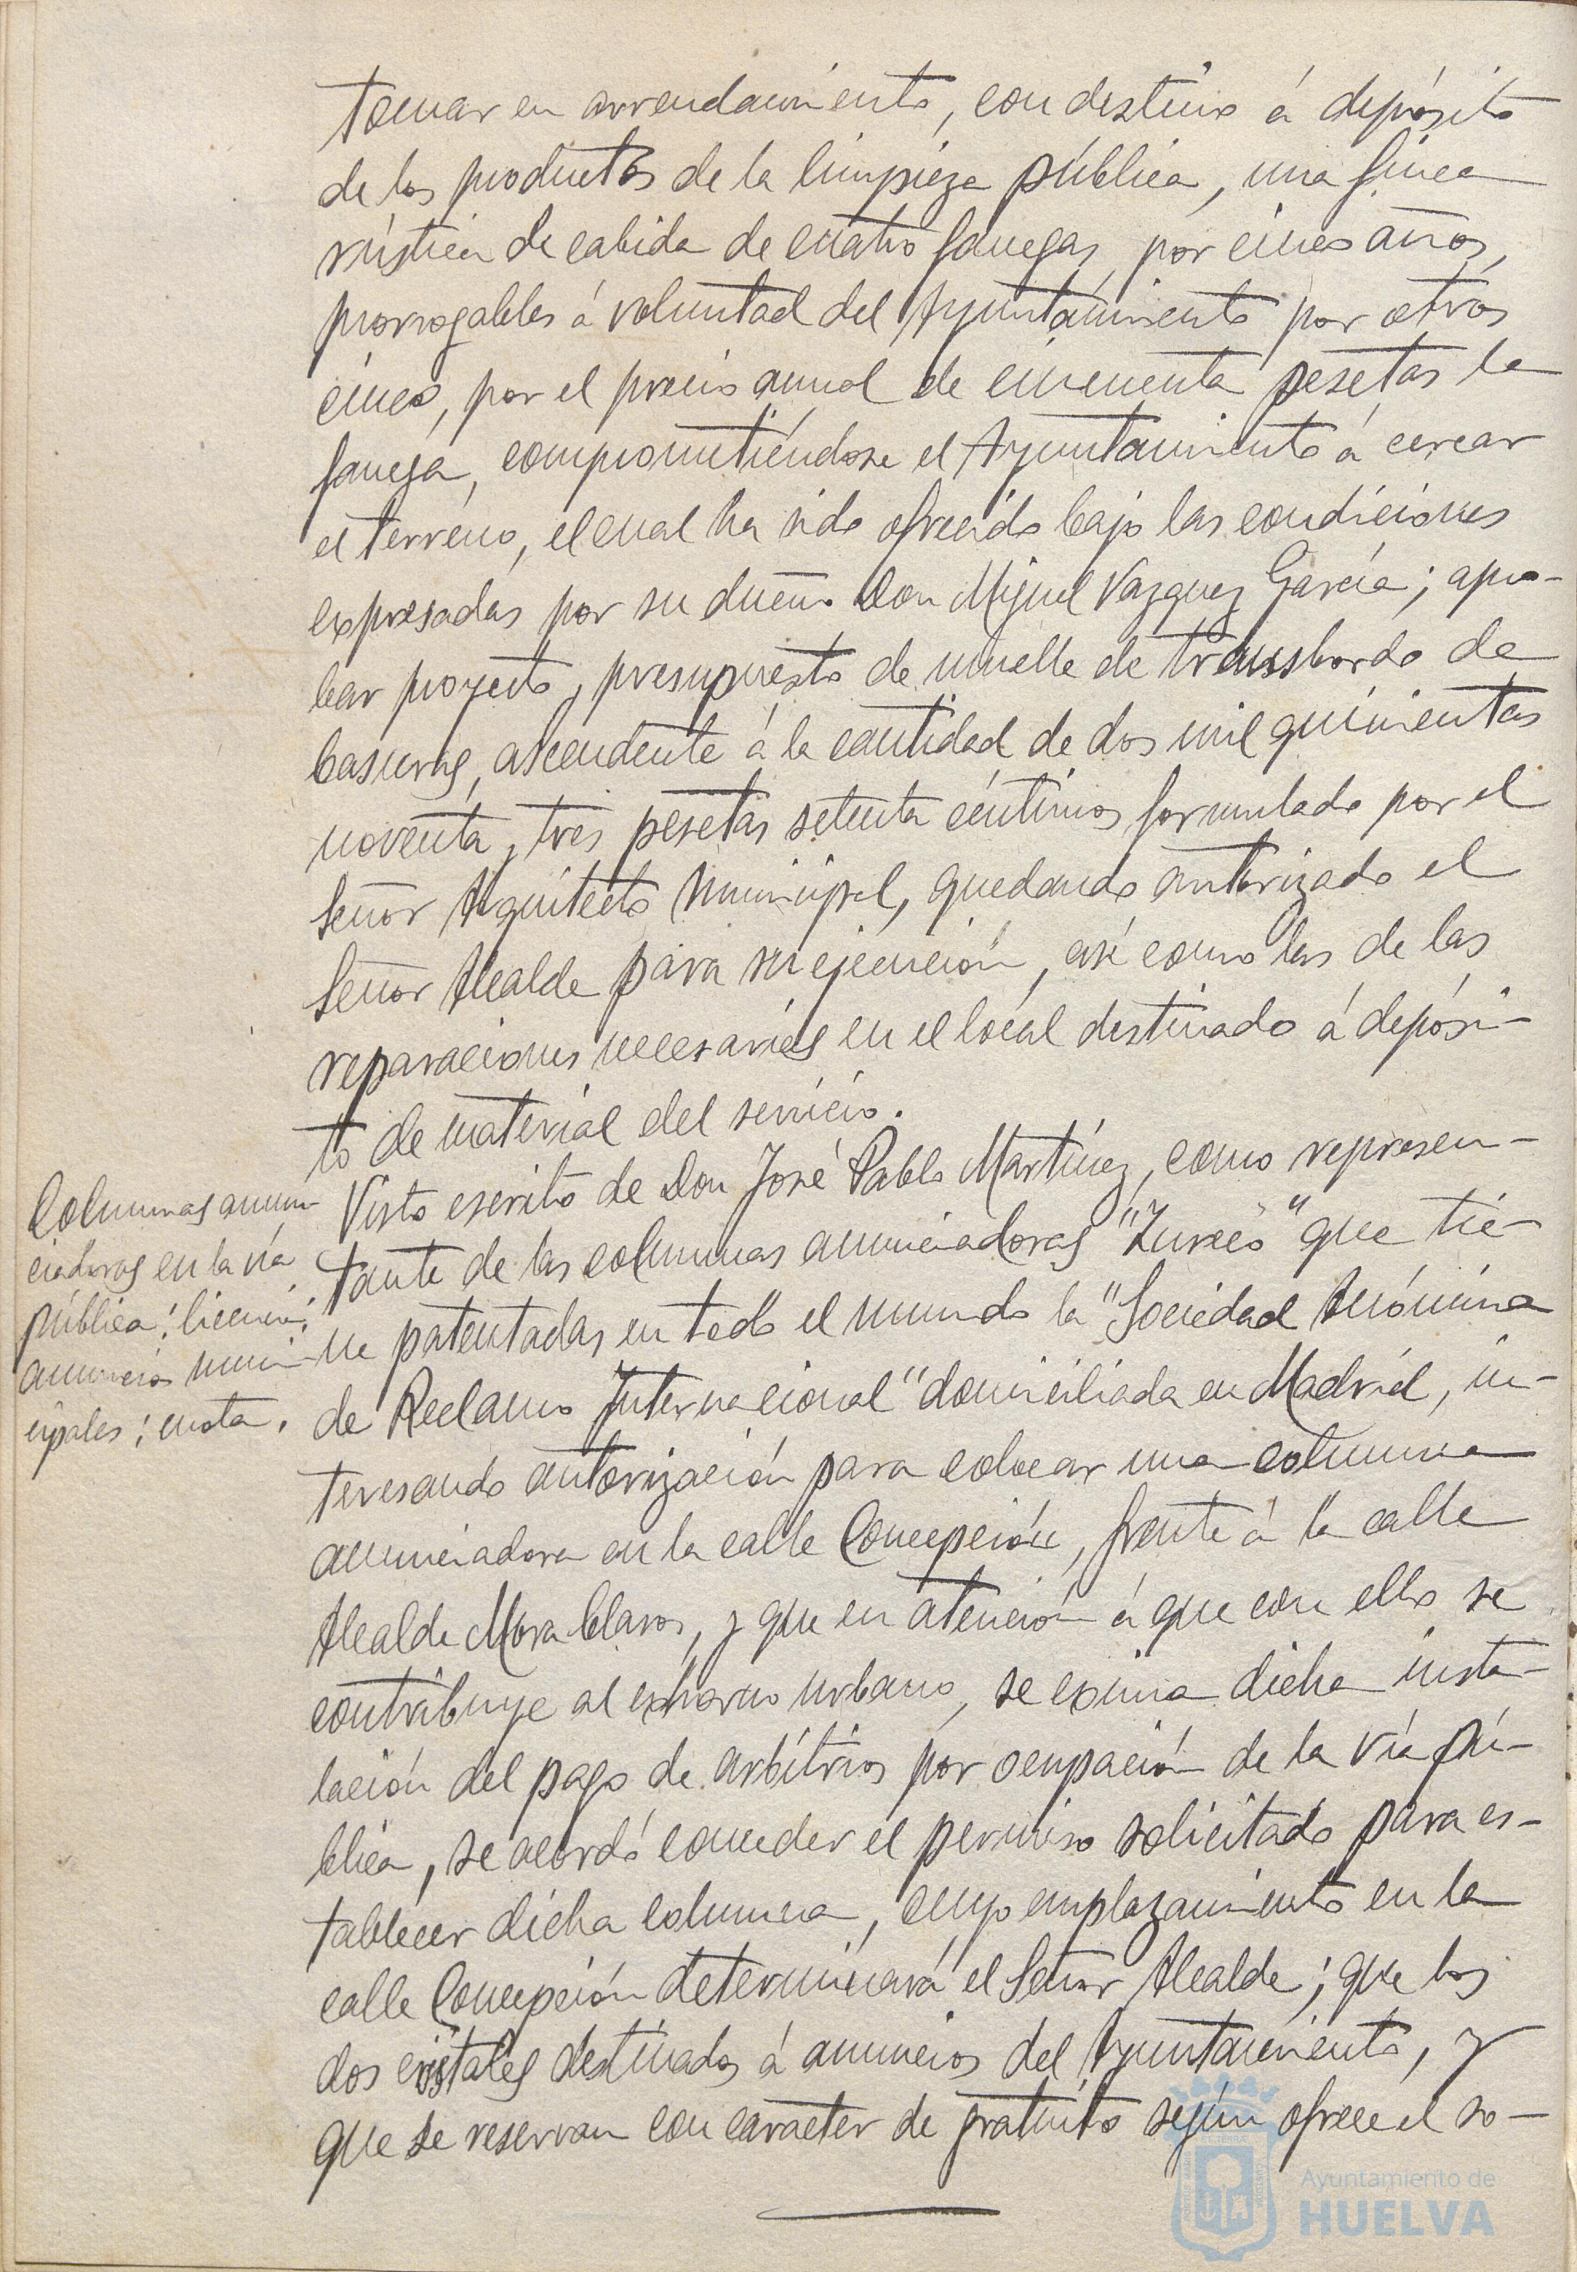 tomar en arrendamiento, con destino á depósito
de los productos de la limpieza pública, una finca
rústica de cabida de cuatro fanegas, por cinco años,
prorrogables á voluntad del Ayuntamiento por otros
cinco, por el precio anual de cincuenta pesetas la
fanega, comprometiéndose el Ayuntamiento á cercar
el terreno, el cual ha sido ofrecido bajo las condiciones
expresadas por su dueño Don Miguel Vazquez García; apro-
bar proyecto y presupuesto de muelle de transbordo de
basuras, ascendente á la cantidad de dos mil quinientas
noventa y tres pesetas setenta céntimos formulado por el
Señor Arquitecto Municipal, quedando autorizado el
Señor Alcalde para su ejecución, así como las de las
reparaciones necesarias en el local destinado á depósi-
to de material del servicio.
Columnas anun-
ciadoras en la vía
pública; licencia;
anuncios muni-
cipales; cuota.
Visto escrito de Don José Pablo Martínez, como represen-
tante de las columnas anunciadoras "Zurco" que tie-
ne patentadas en todo el mundo la "Sociedad Anónima
de Reclamo Internacional" domiciliada en Madrid, in-
teresando autorización para colocar una columna
anunciadora en la calle Concepción, frente á la calle
Alcalde Mora Claros, y que en atención á que con ello se
contribuye al exhorno urbano, se exima dicha insta-
lación del pago de arbitrios por ocupación de la vía pú-
blica, se acordó conceder el permiso solicitado para es-
tablecer dicha columna, cuyo emplazamiento en la
calle Concepción determinará el Señor Alcalde; que los
dos cristales destinados á anuncios del Ayuntamiento, y
que se reservan con caracter de gratuito según ofrece el so-
Ayuntamiento de
HUELVA